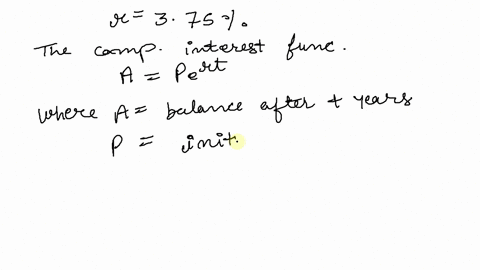 r = 3.75%.
The comp. interest func.
A = Pe^rt
where A = balance after t years
P = init.